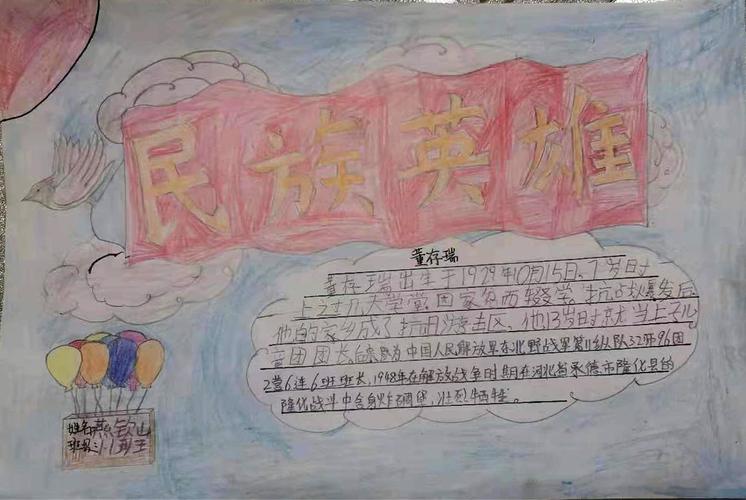 民族英雄
董存瑞
董存瑞出生于1929年10月15日、7岁时
上过几天学堂因家负而辍学,抗战爆发后
他的家乡成了抗日游击区、他13岁时就当上了儿
童团团长、为中国人民解放军东北野战军第11纵队32师96团
2营6连6班班长,1948年在解放战争时期在河北省承德市隆化县的
隆化战斗中舍身炸碉堡,壮烈牺牲。
姓名
班级